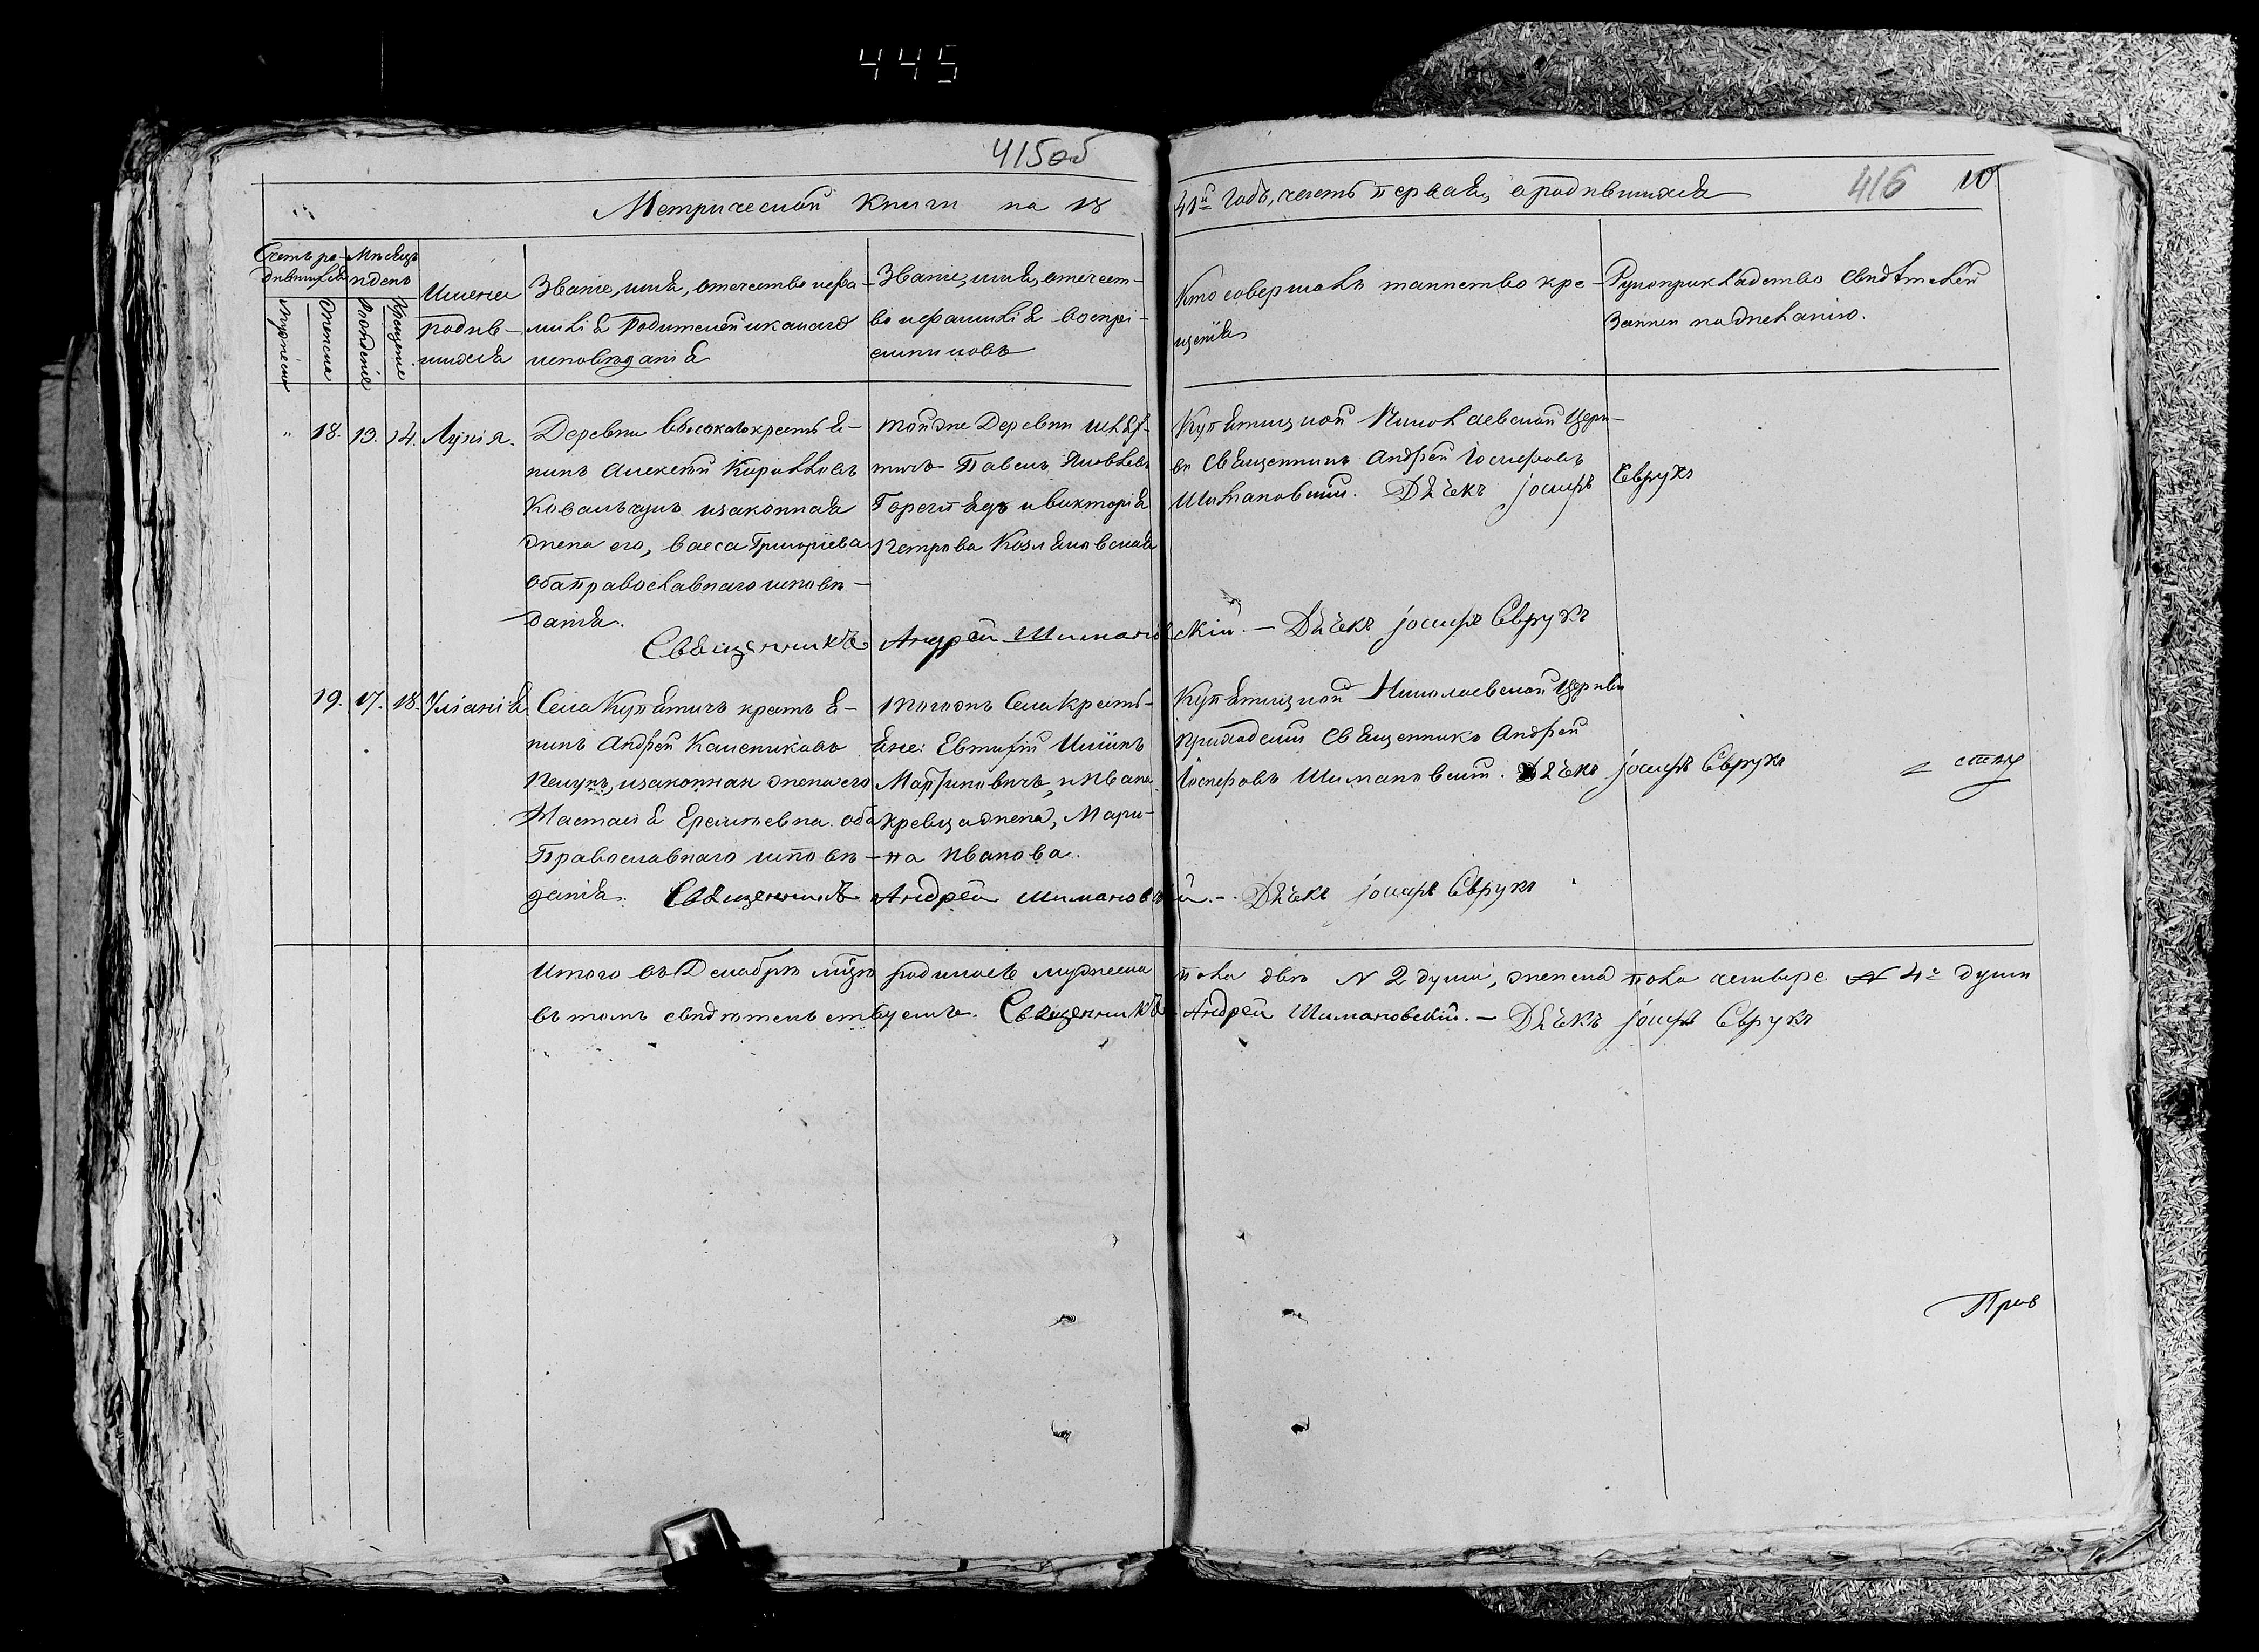 445
415об
416
10
Метрической Книги на 18
41й Годъ, часть первая, ородившихся
Счетъ ро-
дившихся
Мѣсяцъ
идень
Мужеска
Женска
Рожденія
Крещенія
Имена
родив-
шихся
Званіе, имя, отечество ифа-
милія Родителей икакаго
исповѣданія
Званіе, имя, отечест-
во ифамилія воспрі-
емниковъ
Кто совершалъ таинство кре-
щенія
Рукоприкладство свидѣтелей
Записи по желанію.
18. 13. 14. Лукія.
Деревни Высокаго крестья-
нинъ Алексѣй Кирилловъ
Ковальчукъ изаконная
жена его, Васса Григоріева
Оба православнаго исповѣ-
данія.
тойже Деревни шлях-
тичъ Павелъ Яковлевъ
и викторія
Петрова
Купятицкой Николаевской Церк-
ви Священникъ Андрей Іосифовъ
Шимановскій. Дьячекъ Іосифъ Еврукъ
Священникъ Андрей Шимановскій. — Дьячекъ Іосифъ Еврукъ
19. 17. 18. Уліанія.
Села Купятичъ крестья-
нинъ Андрей
изаконная женаего
Настасія оба
Православнаго исповѣ-
данія.
Тогожъ Села Кресть-
яне: Евтихій
Мартиновичъ, иИвана
жена, Мари-
на Иванова.
Купятицкой Николаевской Церкви
Приходскій Священникъ Андрей
Іосифовъ Шимановскій. Дьячекъ Іосифъ Еврукъ
Священникъ Андрей Шимановскій. — Дьячекъ Іосифъ Еврукъ
Итого въ Декабрѣ мцѣ родилось мужеска пола двѣ N 2 души, женска пола четыре N 4е души
въ томъ свидѣтельствуемъ. Священникъ Андрей Шимановскій. — Дьячекъ Іосифъ Еврукъ
Прив